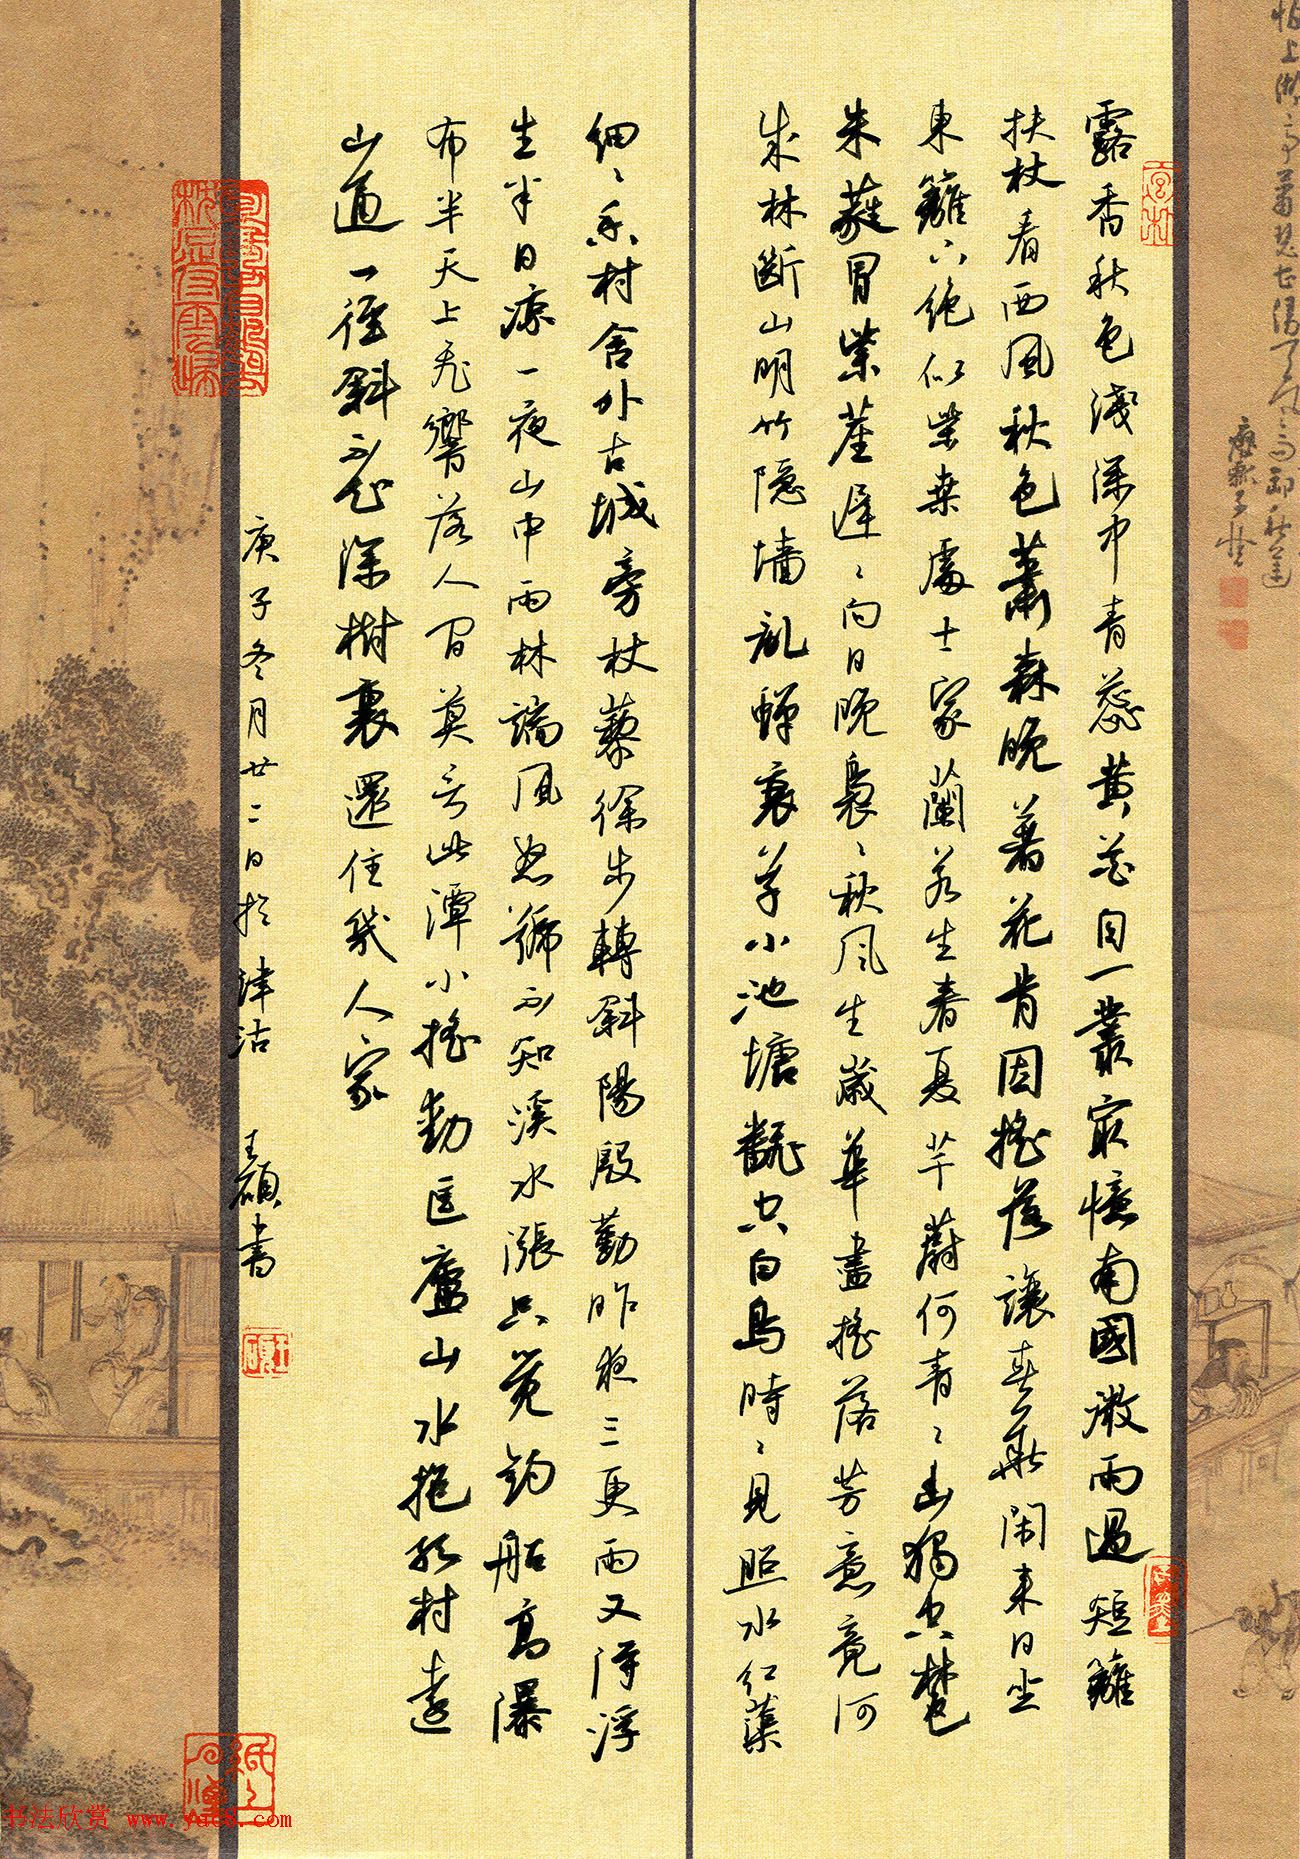 露香秋色淺深中青蕊黃花自一叢最憶南國微雨過短籬
扶杖看西風秋色蕭森晚著花肯因搖落讓春華閑來日坐
東籬下絕似柴桑處士家蘭若生春夏芊蔚何青青幽獨空林色
朱蕤冒紫莖遲遲向日晚裊裊秋風生歲華盡搖落芳意竟何
成林斷山明竹隱墻亂蟬衰草小池塘翻空白鳥時時見照水紅蕖
細細香村舍外古城旁杖藜徐步轉斜陽殷勤昨夜三更雨又得浮
生半日涼一夜山中雨林端風怒號不知溪水漲只覺釣船高瀑
布半天上飛響落人間莫言此潭小搖動匡廬山水抱孤村遠
山通一徑斜不知深樹裏還住幾人家
庚子冬月廿二日於津沽 王碩書
王碩
书法欣赏 www.yac8.com